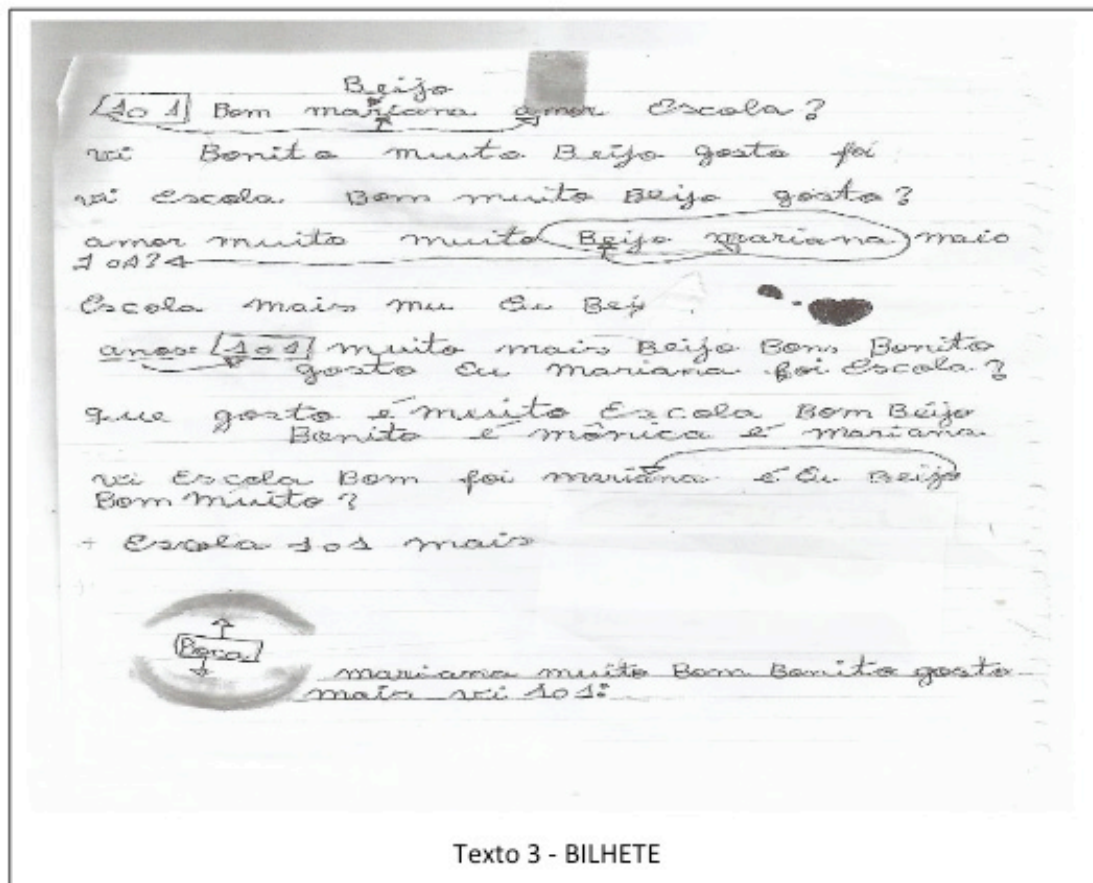 Beijo
101 Bom mariana amor Escola?
vi Bonito muito Beijo gosto foi
vi Escola Bom muito Beijo gosto?
amor muito muito Beijo mariana maio
101?
Escola mais mu Eu Bej
anos: 101 muito mais Beijo Bom Bonito
gosto Eu mariana foi Escola?
que gosto é muito Escola Bom Beijo
Bonito é mônica é mariana
vi Escola Bom foi mariana é Eu Beijo
Bom muito?
+ Escola 101 mais
Boca
mariana muito Bom Bonito gosto
mais vi 101:
Texto 3 - BILHETE